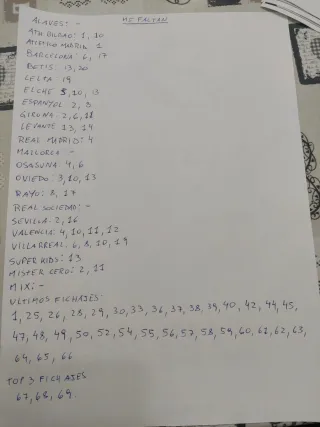 ME FALTAN
ALAVES: -
ATH BILBAO: 1, 10
ATLETICO MADRID 1
BARCELONA 6, 17
BETIS: 13, 20
CELTA 19
ELCHE 5, 10, 13
ESPANYOL 2, 9
GIRONA: 2, 6, 11
LEVANTE 13, 14
REAL MADRID: 4
MALLORCA -
OSASUNA: 4, 6
OVIEDO: 3, 10, 13
RAYO: 8, 17
REAL SOCIEDAD: -
SEVILLA: 2, 16
VALENCIA: 4, 10, 11, 12
VILLARREAL: 6, 8, 10, 19
SUPER KIDS: 13
MISTER CERO: 2, 11
MIX: -
ULTIMOS FICHAJES:
1, 25, 26, 28, 29, 30, 33, 36, 37, 38, 39, 40, 42, 44, 45,
47, 48, 49, 50, 52, 54, 55, 56, 57, 58, 59, 60, 61, 62, 63,
64, 65, 66
TOP 3 FICHAJES
67, 68, 69.